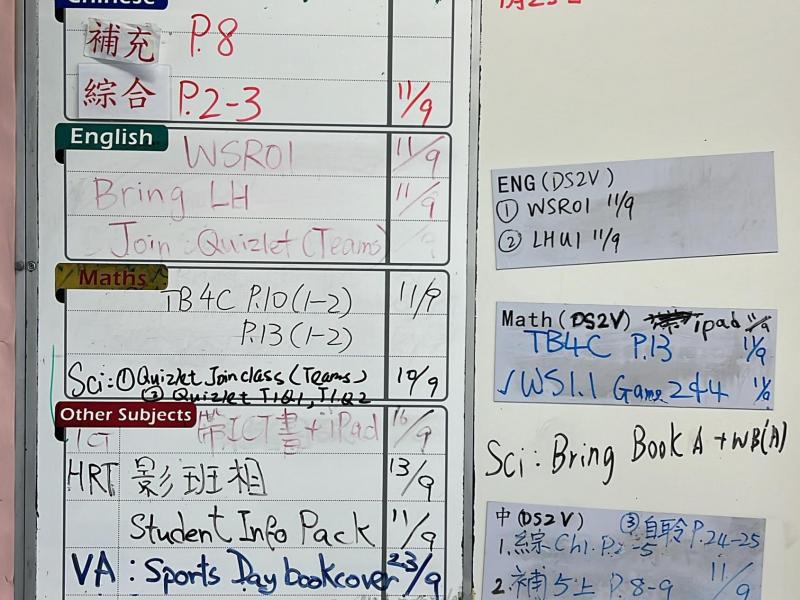 Chinese
補充 P.8
綜合 P.2-3 11/9
English
WSR01 11/9
Bring LH 11/9
Join : Quizlet (Teams)
Maths
TB4C P.10 (1-2) 11/9
P.13 (1-2)
Sci: ① Quizlet Join class (Teams) 10/9
② Quizlet T1Q1, T1Q2
Other Subjects
ICT 帶ICT書+iPad 16/9
HRT 影班相 13/9
Student Info Pack 11/9
VA : Sports Day bookcover 23/9
ENG (DS2V)
① WSR01 11/9
② LHU1 11/9
Math (DS2V) ipad 11/9
TB4C P.13 11/9
✓WS1.1 Game 2&4 11/9
Sci : Bring Book A + WB(A)
中 (DS2V) ③ 自聆 P.24-25
1. 綜 Ch1. P.2-5
2. 補 5上 P.8-9 11/9